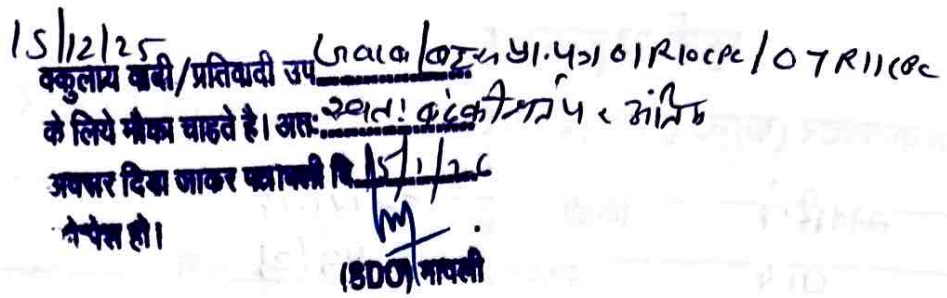 15/12/25
वकुलाय वादी/प्रतिवादी उप जवाब/बहस प्रा.पत्र O1R10CPC/O7R11CPC
के लिये मौका चाहते है। अतः
अवसर दिया जाकर पत्रावली दि. 15/1/26
को पेश हो।
(SDO) मावली